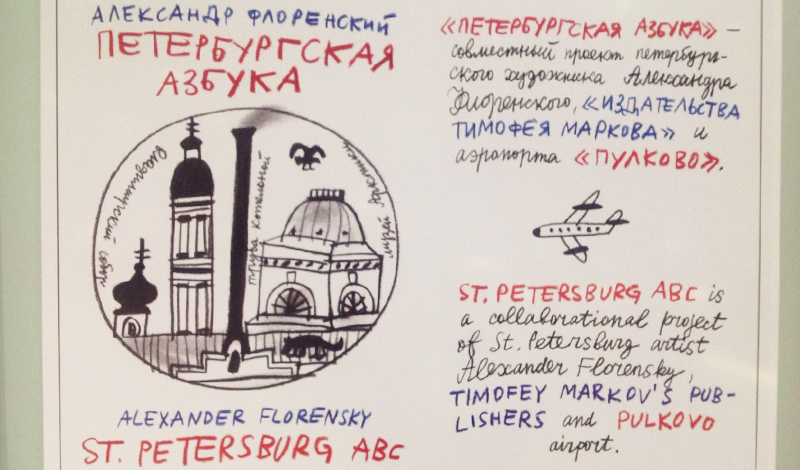 АЛЕКСАНДР ФЛОРЕНСКИЙ
ПЕТЕРБУРГСКАЯ
АЗБУКА
Владимирский собор
труба котельной
музей Арктики
ALEXANDER FLORENSKY
ST. PETERSBURG ABC
«ПЕТЕРБУРГСКАЯ АЗБУКА» –
совместный проект петербург-
ского художника Александра
Флоренского, «ИЗДАТЕЛЬСТВА
ТИМОФЕЯ МАРКОВА» и
аэропорта «ПУЛКОВО».
ST. PETERSBURG ABC is
a collaborational project
of St. Petersburg artist
Alexander Florensky,
TIMOFEY MARKOV'S PUB-
LISHERS and PULKOVO
airport.